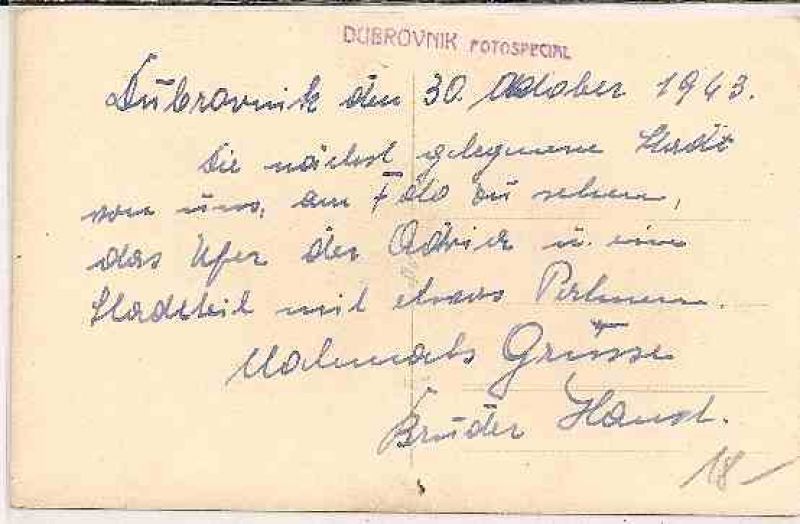 DUBROVNIK FOTOSPECIAL
Dubrovnik den 30. Oktober 1943.
Die nächst gelegene Stadt
von uns, am Foto zu sehen,
das Ufer der Adria u. ein
Stadtteil mit etwas Palmen.
Nochmals Grüsse
Bruder Hansl.
18 –